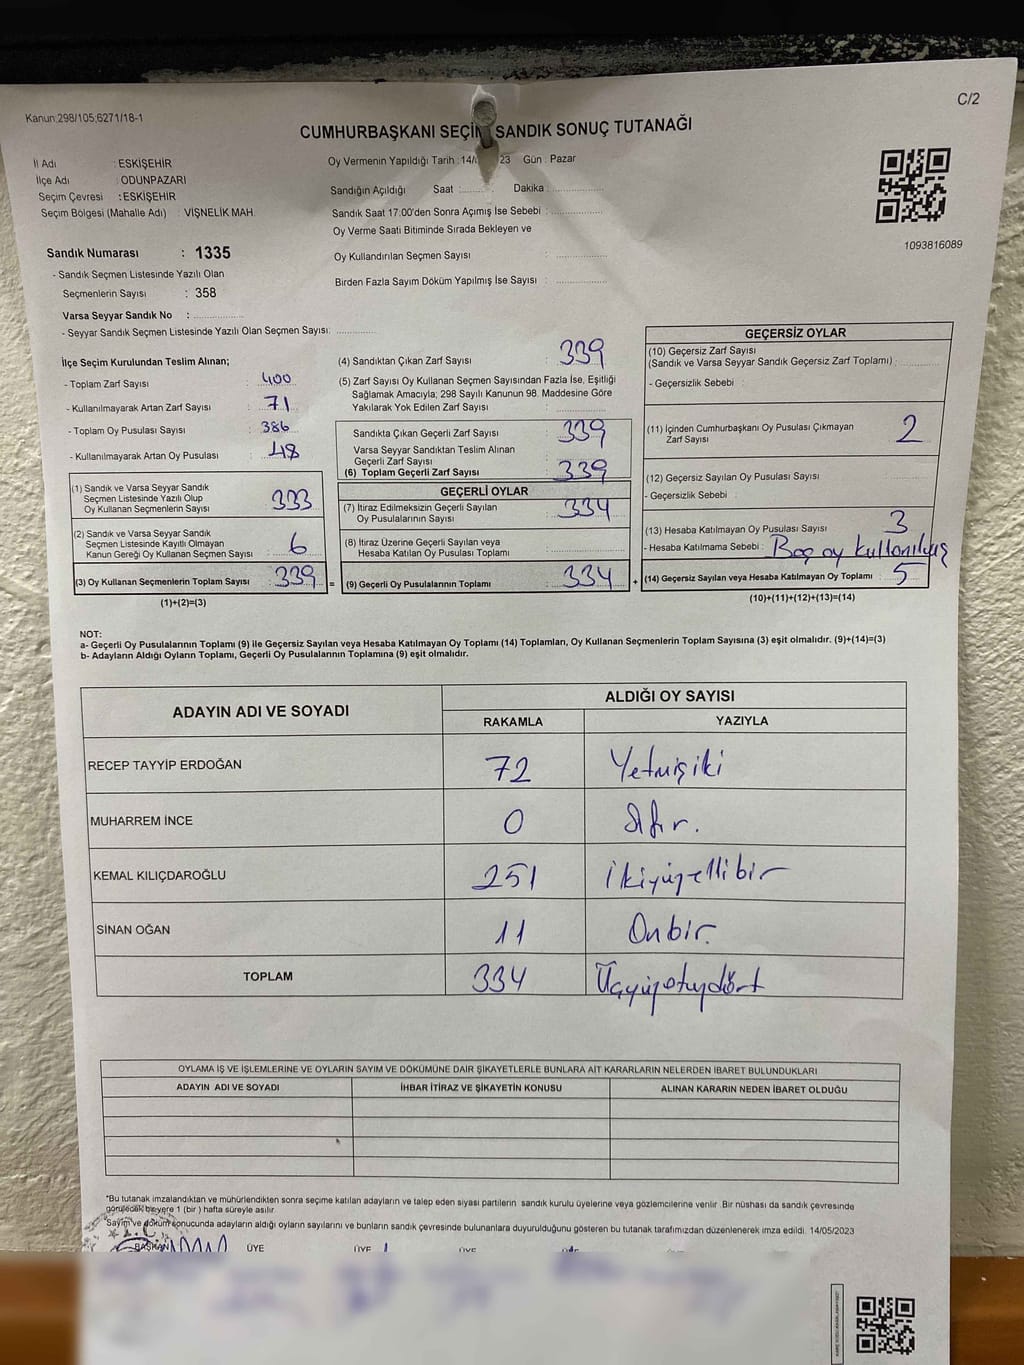 C/2
Kanun:298/105;6271/18-1
CUMHURBAŞKANI SEÇİM SANDIK SONUÇ TUTANAĞI
İl Adı : ESKİŞEHİR
İlçe Adı : ODUNPAZARI
Seçim Çevresi : ESKİŞEHİR
Seçim Bölgesi (Mahalle Adı) : VİŞNELİK MAH.
Oy Vermenin Yapıldığı Tarih :14/ 23 Gün : Pazar
Sandığın Açıldığı Saat :......... Dakika :...............
Sandık Saat 17.00'den Sonra Açımış İse Sebebi :...............
Oy Verme Saati Bitiminde Sırada Bekleyen ve
Oy Kullandırılan Seçmen Sayısı :...............
Birden Fazla Sayım Döküm Yapılmış İse Sayısı :...............
1093816089
Sandık Numarası : 1335
- Sandık Seçmen Listesinde Yazılı Olan
Seçmenlerin Sayısı : 358
Varsa Seyyar Sandık No :...............
- Seyyar Sandık Seçmen Listesinde Yazılı Olan Seçmen Sayısı: ............
İlçe Seçim Kurulundan Teslim Alınan;
- Toplam Zarf Sayısı : 400
- Kullanılmayarak Artan Zarf Sayısı : 71
- Toplam Oy Pusulası Sayısı : 386
- Kullanılmayarak Artan Oy Pusulası : 48
(1) Sandık ve Varsa Seyyar Sandık
Seçmen Listesinde Yazılı Olup
Oy Kullanan Seçmenlerin Sayısı : 333
(2) Sandık ve Varsa Seyyar Sandık
Seçmen Listesinde Kayıtlı Olmayan
Kanun Gereği Oy Kullanan Seçmen Sayısı : 6
(3) Oy Kullanan Seçmenlerin Toplam Sayısı : 339 =
(1)+(2)=(3)
(4) Sandıktan Çıkan Zarf Sayısı : 339
(5) Zarf Sayısı Oy Kullanan Seçmen Sayısından Fazla İse, Eşitliği
Sağlamak Amacıyla; 298 Sayılı Kanunun 98. Maddesine Göre
Yakılarak Yok Edilen Zarf Sayısı :...............
Sandıkta Çıkan Geçerli Zarf Sayısı : 339
Varsa Seyyar Sandıktan Teslim Alınan
Geçerli Zarf Sayısı :
(6) Toplam Geçerli Zarf Sayısı : 339
GEÇERLİ OYLAR
(7) İtiraz Edilmeksizin Geçerli Sayılan
Oy Pusulalarının Sayısı : 334
(8) İtiraz Üzerine Geçerli Sayılan veya
Hesaba Katılan Oy Pusulası Toplamı :...............
(9) Geçerli Oy Pusulalarının Toplamı : 334 +
GEÇERSİZ OYLAR
(10) Geçersiz Zarf Sayısı
(Sandık ve Varsa Seyyar Sandık Geçersiz Zarf Toplamı) :
- Geçersizlik Sebebi :
(11) İçinden Cumhurbaşkanı Oy Pusulası Çıkmayan
Zarf Sayısı : 2
(12) Geçersiz Sayılan Oy Pusulası Sayısı :
- Geçersizlik Sebebi :
(13) Hesaba Katılmayan Oy Pusulası Sayısı : 3
- Hesaba Katılmama Sebebi : Boş oy kullanılmış
(14) Geçersiz Sayılan veya Hesaba Katılmayan Oy Toplamı : 5
(10)+(11)+(12)+(13)=(14)
NOT:
a- Geçerli Oy Pusulalarının Toplamı (9) ile Geçersiz Sayılan veya Hesaba Katılmayan Oy Toplamı (14) Toplamları, Oy Kullanan Seçmenlerin Toplam Sayısına (3) eşit olmalıdır. (9)+(14)=(3)
b- Adayların Aldığı Oyların Toplamı, Geçerli Oy Pusulalarının Toplamına (9) eşit olmalıdır.
ADAYIN ADI VE SOYADI ALDIĞI OY SAYISI
RAKAMLA YAZIYLA
RECEP TAYYİP ERDOĞAN 72 Yetmişiki
MUHARREM İNCE 0 Sıfır.
KEMAL KILIÇDAROĞLU 251 İkiyüzellibir
SİNAN OĞAN 11 Onbir.
TOPLAM 334 Üçyüzotuzdört
OYLAMA İŞ VE İŞLEMLERİNE VE OYLARIN SAYIM VE DÖKÜMÜNE DAİR ŞİKAYETLERLE BUNLARA AİT KARARLARIN NELERDEN İBARET BULUNDUKLARI
ADAYIN ADI VE SOYADI İHBAR İTİRAZ VE ŞİKAYETİN KONUSU ALINAN KARARIN NEDEN İBARET OLDUĞU
*Bu tutanak imzalandıktan ve mühürlendikten sonra seçime katılan adayların ve talep eden siyasi partilerin sandık kurulu üyelerine veya gözlemcilerine verilir. Bir nüshası da sandık çevresinde
görülecek bir yere 1 (bir ) hafta süreyle asılır.
*Sayım ve döküm sonucunda adayların aldığı oyların sayılarını ve bunların sandık çevresinde bulunanlara duyurulduğunu gösteren bu tutanak tarafımızdan düzenlenerek imza edildi. 14/05/2023
T.C.
BAŞKAN ÜYE ÜYE ÜYE